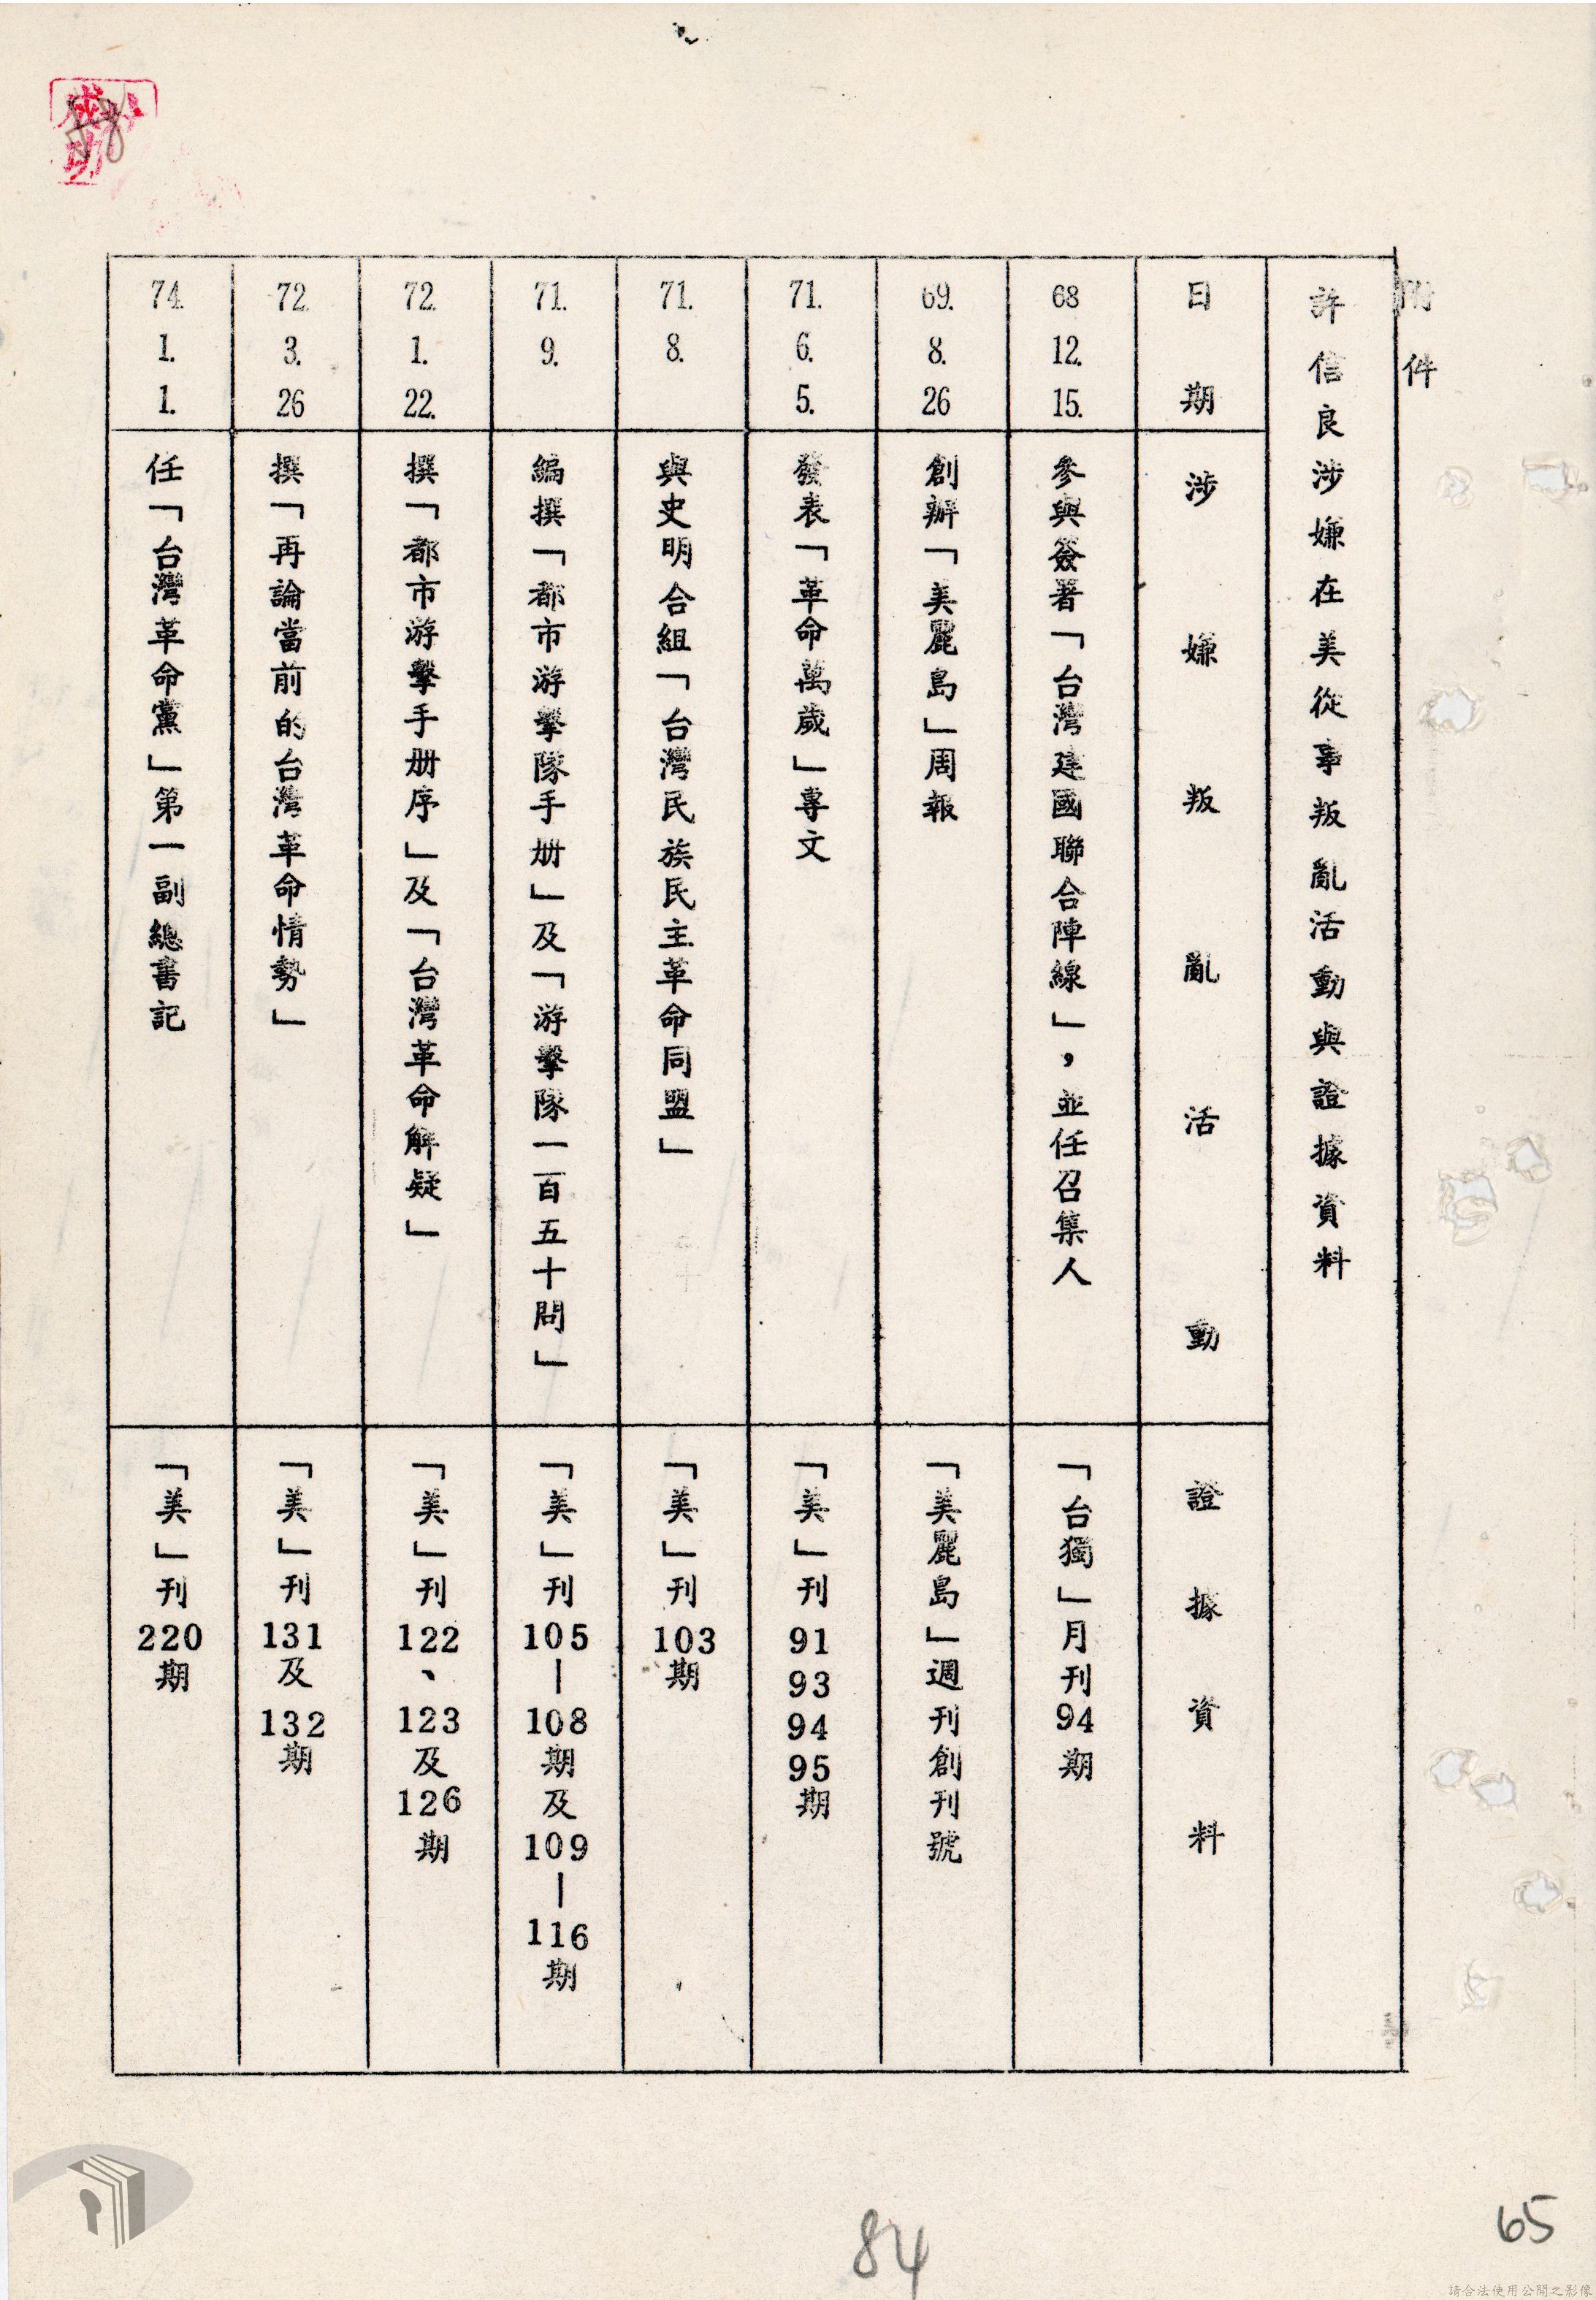 附件
許信良涉嫌在美從事叛亂活動與證據資料
日期 涉嫌叛亂活動 證據資料
68 12. 15. 參與簽署「台灣建國聯合陣線」,並任召集人 「台獨」月刊94期
69. 8. 26 創辦「美麗島」周報 「美麗島」週刊創刊號
71. 6. 5. 發表「革命萬歲」專文 「美」刊 91 93 94 95 期
71. 8. 與史明合組「台灣民族民主革命同盟」 「美」刊103期
71. 9. 編撰「都市游擊隊手册」及「游擊隊一百五十問」 「美」刊105—108期及109—116期
72. 1. 22. 撰「都市游擊手册序」及「台灣革命解疑」 「美」刊122、123及126期
72. 3. 26 撰「再論當前的台灣革命情勢」 「美」刊131及132期
74. 1. 1. 任「台灣革命黨」第一副總書記 「美」刊220期
84
65
請合法使用公開之影像